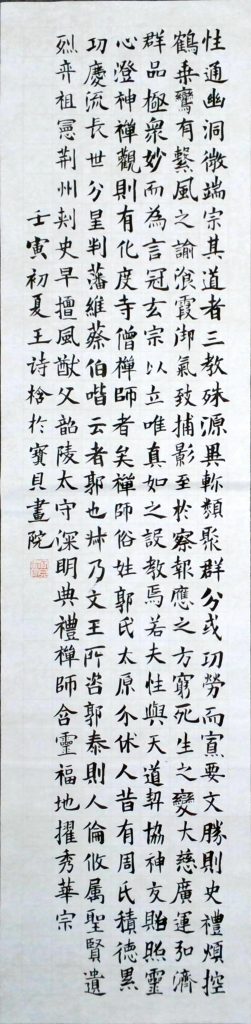 性通幽洞微端宗其道者三教殊源異軫類聚群分或功勞而寡要文勝則史禮煩控
鶴乘鸞有繫風之諭飡霞御氣致捕影至於察報應之方窮死生之變大慈廣運弘濟
群品極衆妙而為言冠玄宗以立唯真如之設教焉若夫性與天道契協神友貽照靈
心澄神禪觀則有化度寺僧禪師者矣禪師俗姓郭氏太原介休人昔有周氏積德累
功慶流長世分星判藩維蔡伯喈云者郭也乃文王所咨郭泰則人倫攸屬聖賢遺
烈弈祖憲荊州刺史早擅風猷父韶陵太守深明典禮禪師含靈福地擢秀華宗
壬寅初夏王詩於寶貝畫院